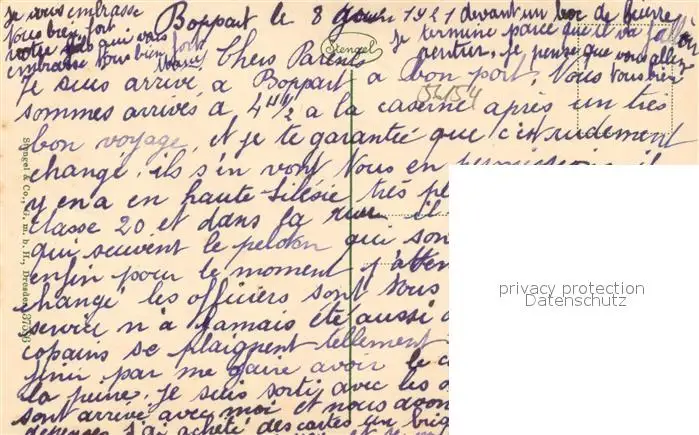 Je vous embrasse
tous bien fort
votre fils qui vous
embrasse tous bien fort
Boppart le 8 1921 devant un boc de bierre
Je termine parce qu'il va falloir
rentrer, je pense que vous allez
tous bien
Stengel
Chers Parents
Je suis arrivé a Boppart a bon port, Nous
54154
sommes arrivés a 4 H 1/2 a la caserne après un très
bon voyage, et je te garantie que c'est rudement
changé, ils s'en vont tous en permission, il
y en a en haute-Silésie très
classe 20 et dans la il
qui suivent le peloton qui son
enfin pour le moment j'atten
changé les officiers sont tous
service n'a jamais été aussi
copains se plaignent tellement
finir par me faire avoir le
la peine. Je suis sorti avec les
sont arrivé avec moi et nous
depenses j'ai acheté des cartes un
Stengel & Co., G. m. b. H., Dresden
privacy protection
Datenschutz